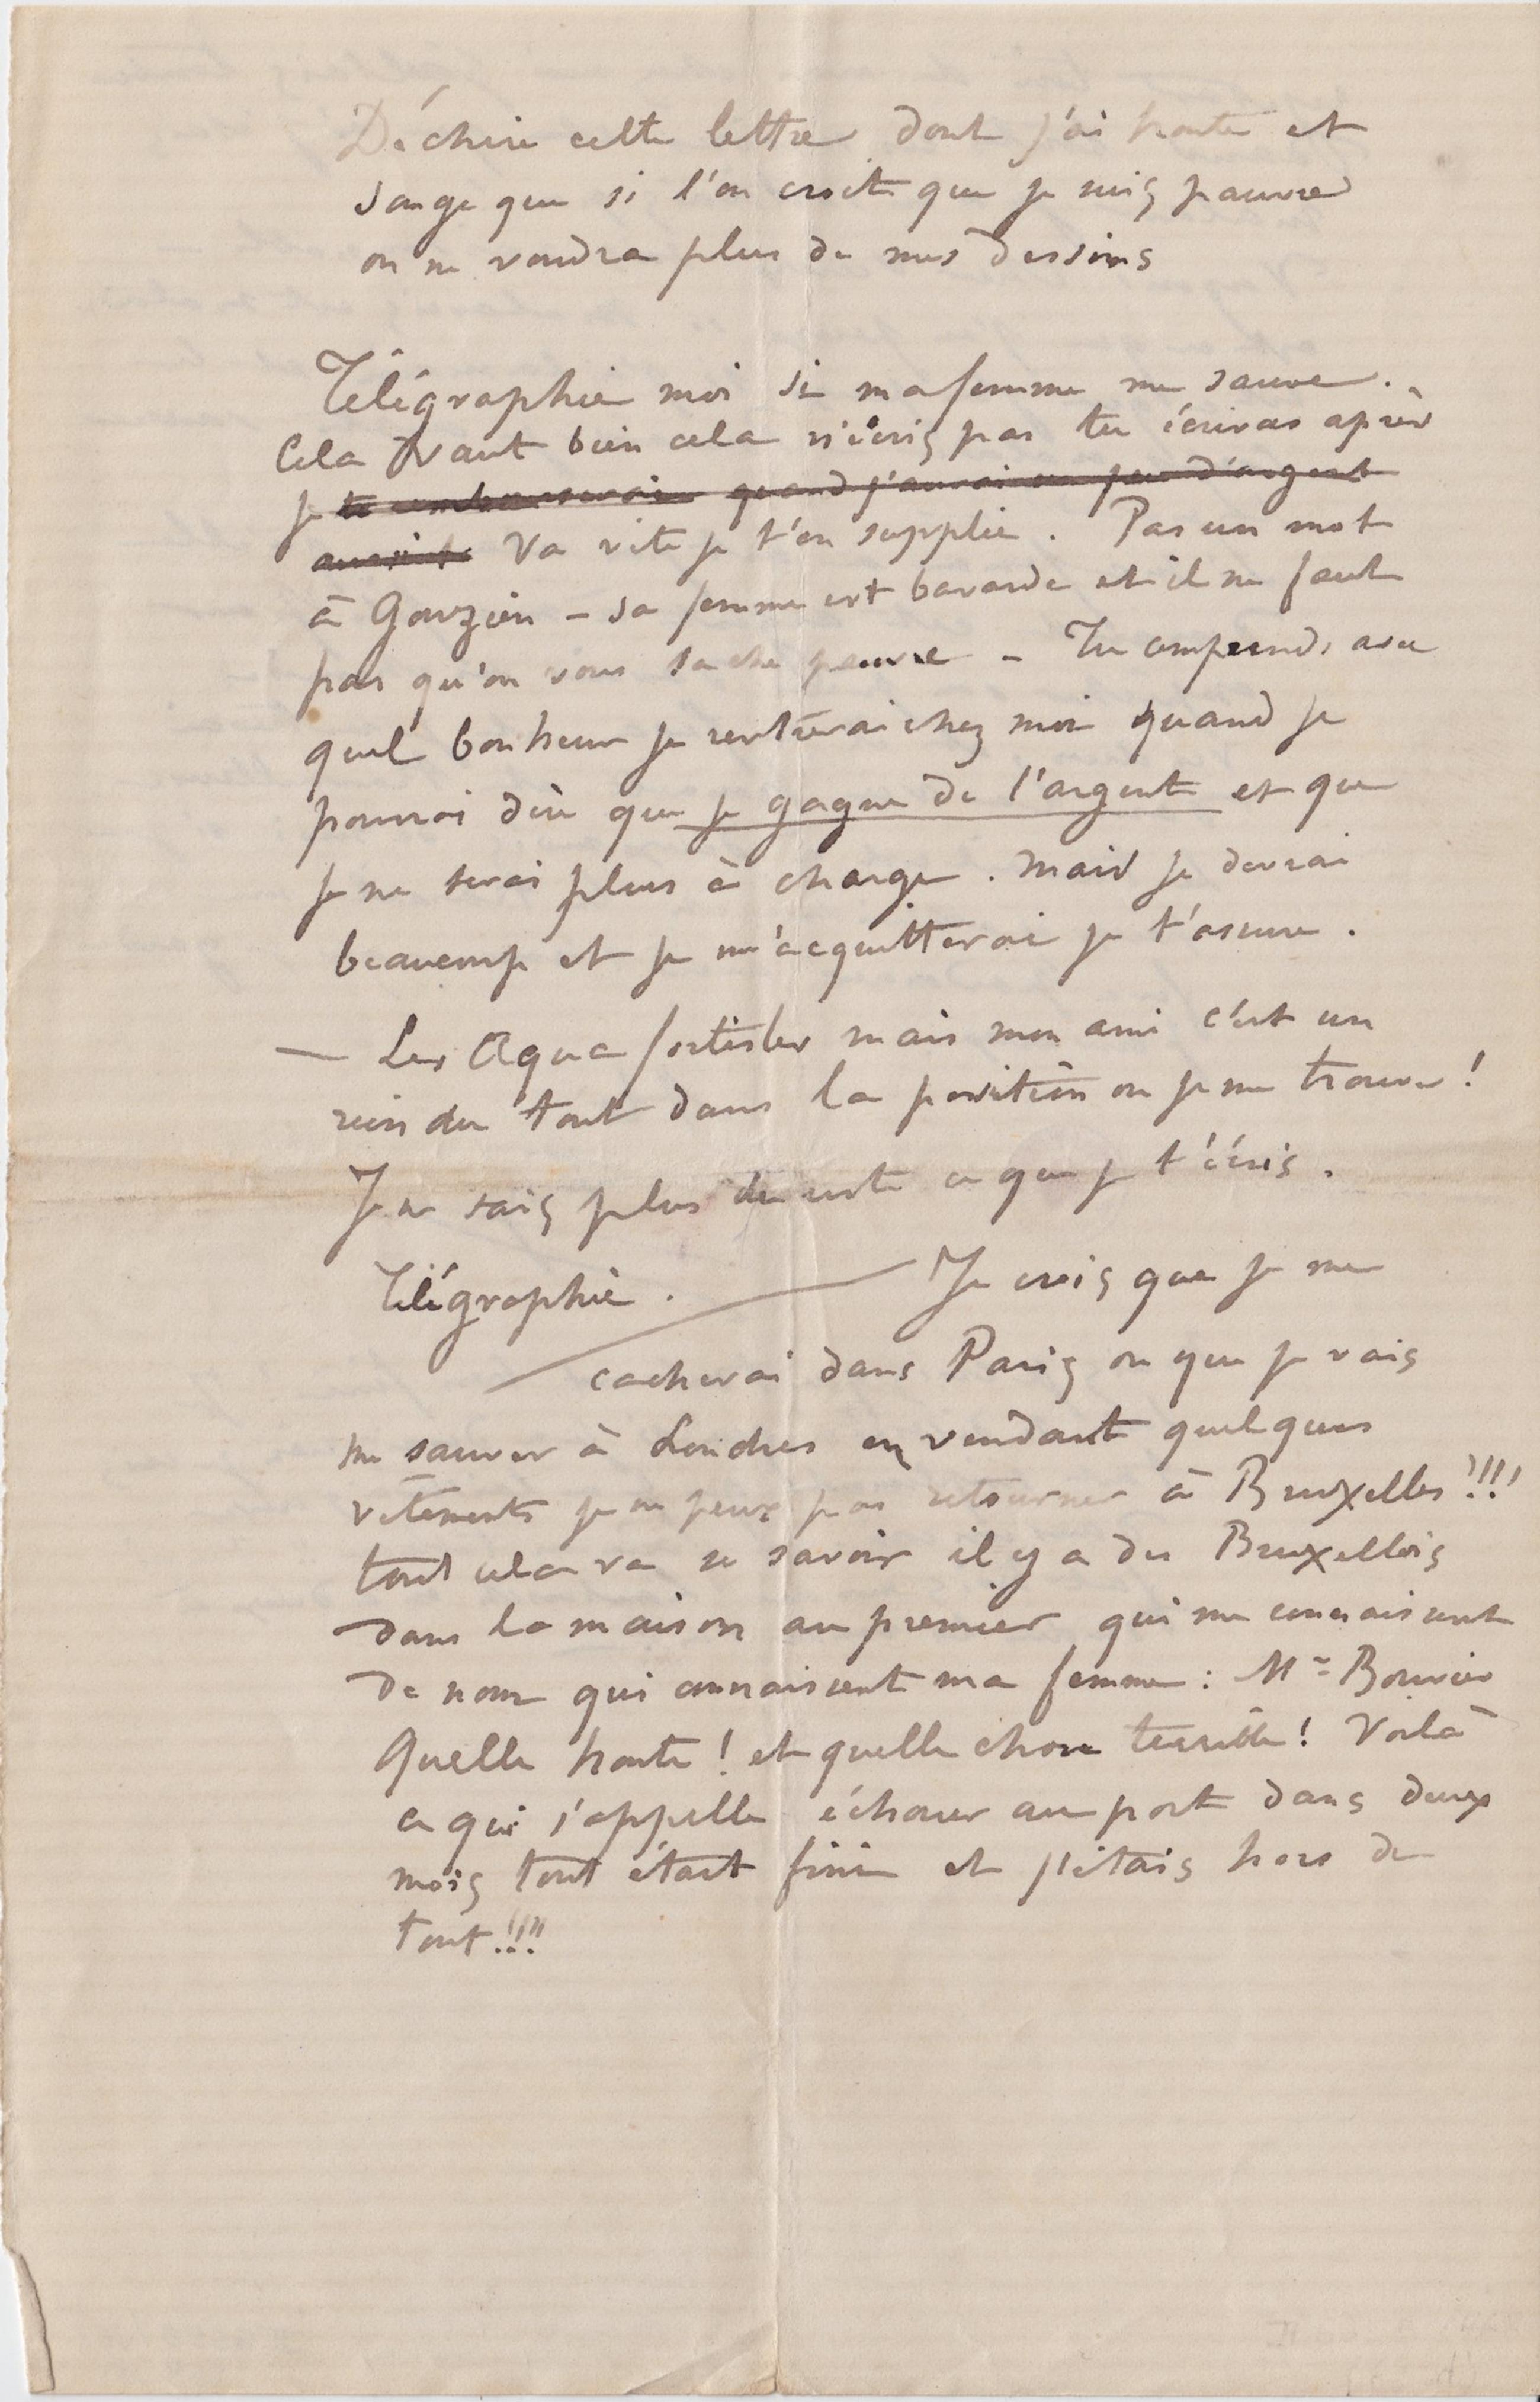 Déchire cette lettre dont j'ai honte et
songe que si l'on croit que je suis pauvre
on ne voudra plus de mes dessins
Télégraphie moi si ma femme me sauve.
Cela vaut bien cela n'écris pas tu écriras après
je te rembourserai quand j'aurai un peu d'argent
aussitôt Va vite je t'en supplie. Pas un mot
à Gouzien – sa femme est bavarde et il ne faut
pas qu'on vous sache pauvre – Tu comprends avec
quel bonheur je rentrerai chez moi quand je
pourrai dire que je gagne de l'argent et que
je ne serai plus à charge. Mais je devrai
beaucoup et je m'acquitterai je t'assure.
— Les Aquafortistes mais mon ami c'est un
rien du tout dans la position ou je me trouve!
Je ne sais plus du reste ce que je t'écris.
Télégraphie. — Je crois que je me
cacherai dans Paris ou que je vais
me sauver à Londres en vendant quelques
vêtements je ne peux pas retourner à Bruxelles!!!!
tout cela va se savoir il y a des Bruxellois
dans la maison au premier qui me connaissent
de nom qui connaissent ma femme: Mr Bouvier
Quelle honte! et quelle chose terrible! Voilà
ce qui s'appelle échouer au port dans deux
mois tout était fini et j'étais hors de
tout!!!!